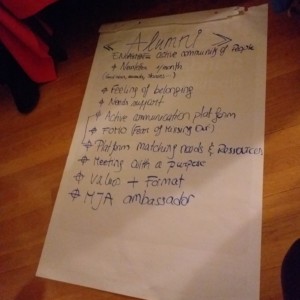 Alumni
active community of People
+ Number growth
+ Feeling of belonging
+ Needs support
+ Active communication platform
+ FOMO (Fear of Missing Out)
+ Platform matching needs & Resources
+ Meeting with a purpose
+ Video + Format
+ MJA ambassador